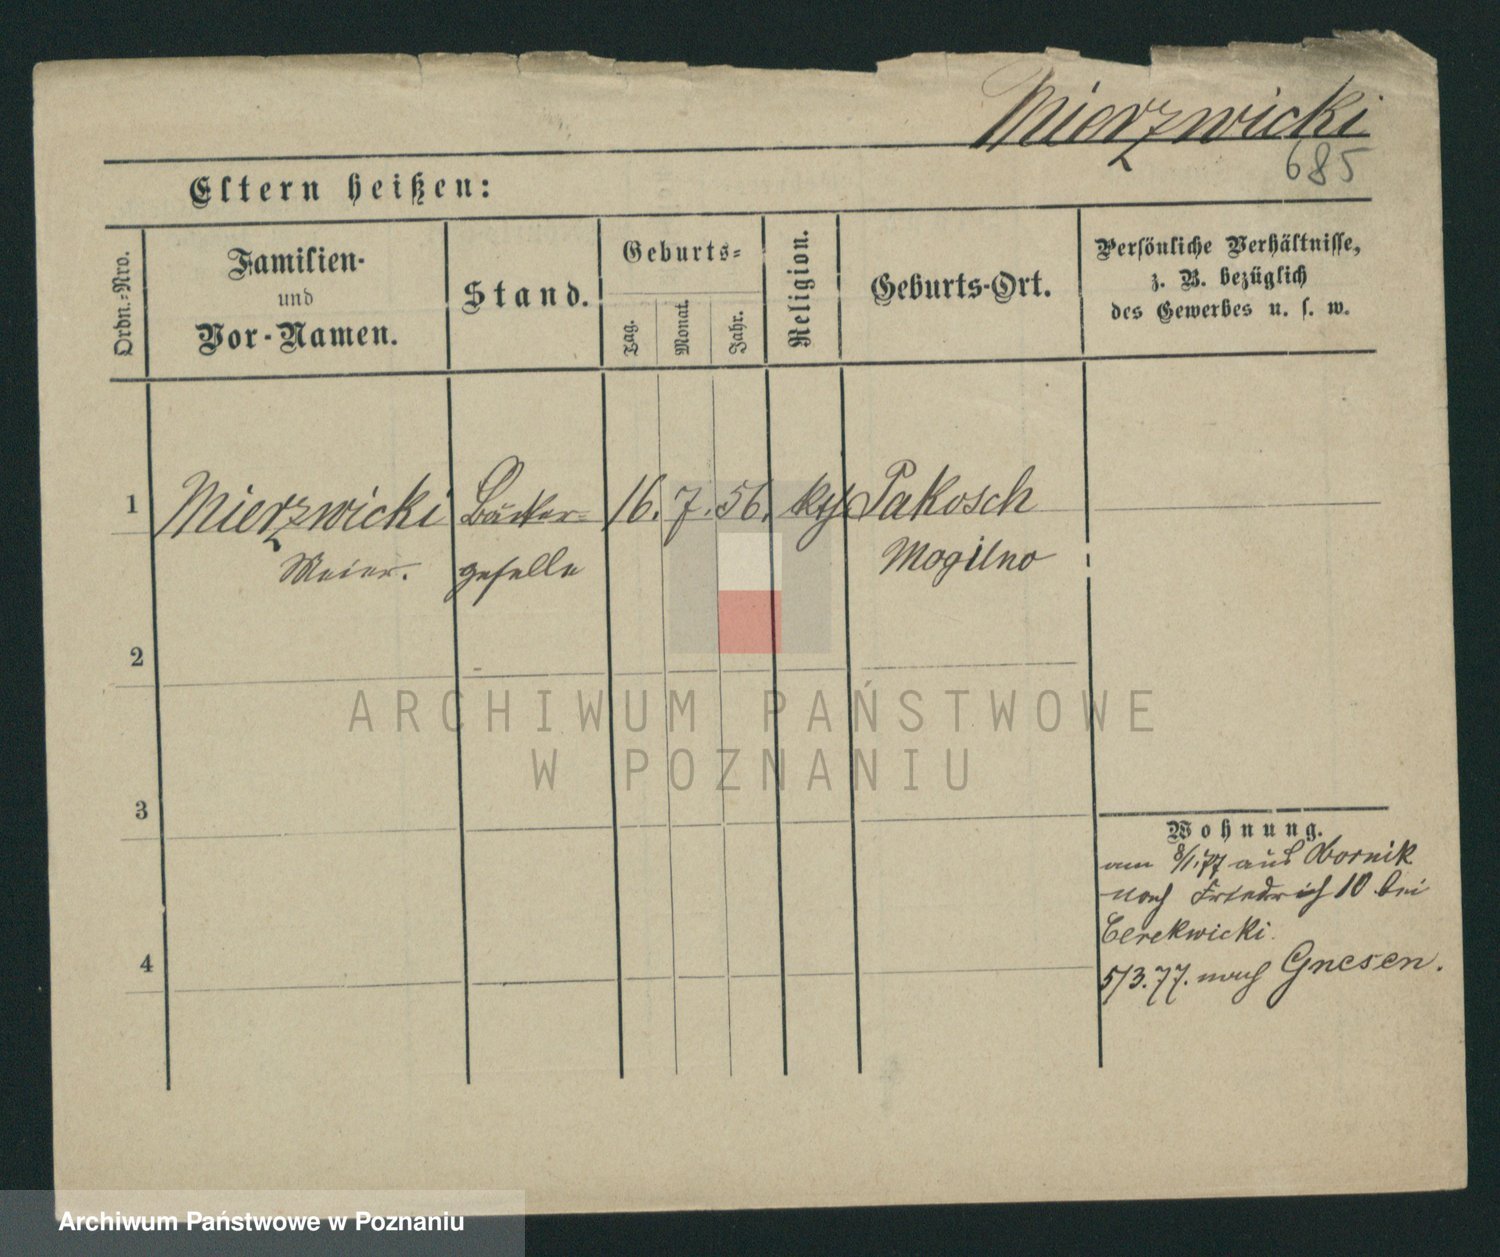 Mierzwicki
685
Eltern heißen:
Ordn.-Nro.
Familien-
und
Vor-Namen.
Stand.
Geburts-
Tag.
Monat.
Jahr.
Religion.
Geburts-Ort.
Persönliche Verhältnisse,
z. B. bezüglich
des Gewerbes u. s. w.
1 Mierzwicki Bäcker- 16. 7. 56. kth Pakosch
Meier. geselle Mogilno
2
ARCHIWUM PAŃSTWOWE
W POZNANIU
3
Wohnung.
am 8/1.77 aus Obornik
nach Friedrich 10 bei
Cerekwicki.
4
5/3.77. nach Gnesen.
Archiwum Państwowe w Poznaniu